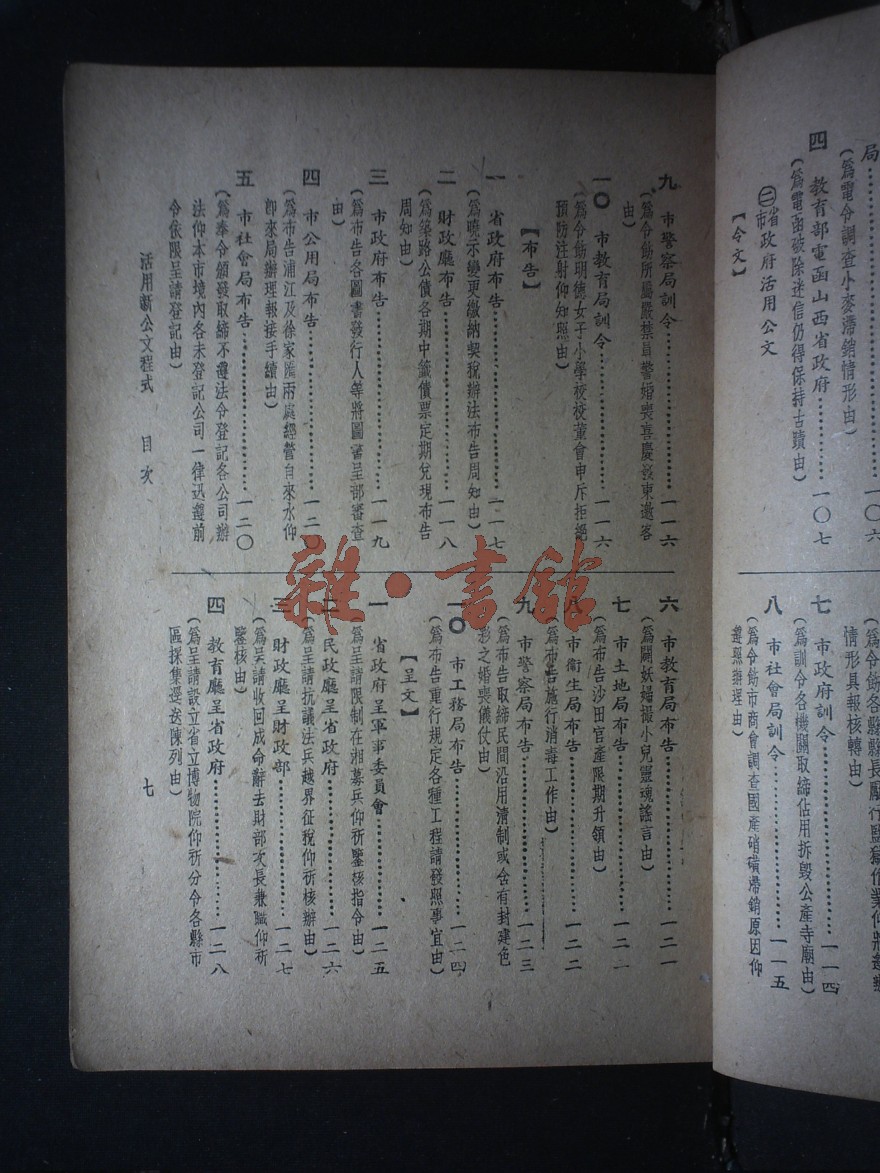 局⋯⋯一〇六
(爲電令調查小麥滯銷情形由)
四 教育部電函山西省政府⋯⋯一〇七
(爲電函破除迷信仍得保持古蹟由)
㊁省市政府活用公文
【令文】
情形具報核轉由)
七 市政府訓令⋯⋯一一四
(爲訓令各機關取締佔用拆毀公產寺廟由)
八 市社會局訓令⋯⋯一一五
(爲令飭市商會調查國產硝磺滯銷原因仰
遵照辦理由)
九 市警察局訓令⋯⋯一一六
(爲令飭所屬嚴禁員警婚喪喜慶發柬邀客
由)
一〇 市教育局訓令⋯⋯一一六
(爲令飭明德女子小學校校董會申斥拒絕
預防注射仰知照由)
【布告】
一 省政府布告⋯⋯一一七
(爲曉示變更繳納契稅辦法布告周知由)
二 財政廳布告⋯⋯一一八
(爲築路公債各期中籤債票定期兌現布告
周知由)
三 市政府布告⋯⋯一一九
(爲布告各圖書發行人等將圖書呈部審查
由)
四 市公用局布告⋯⋯一二〇
(爲布告浦江及徐家匯兩處經營自來水仰
卽來局辦理報接手續由)
五 市社會局布告⋯⋯一二〇
(爲奉令頒發取締不遵法令登記各公司辦
法仰本市境內各未登記公司一律迅遵前
令依限呈請登記由)
六 市教育局布告⋯⋯一二一
(爲闢妖婦撮小兒靈魂謠言由)
七 市土地局布告⋯⋯一二一
(爲布告沙田官產限期升領由)
八 市衞生局布告⋯⋯一二二
(爲布告施行消毒工作由)
九 市警察局布告⋯⋯一二三
(爲布告取締民間沿用淸制或含有封建色
彩之婚喪儀仗由)
一〇 市工務局布告⋯⋯一二四
(爲布告重行規定各種工程請發照事宜由)
【呈文】
一 省政府呈軍事委員會⋯⋯一二五
(爲呈請限制在湘募兵仰祈鑒核指令由)
二 民政廳呈省政府⋯⋯一二六
(爲呈請抗議法兵越界征稅仰祈核辦由)
三 財政廳呈財政部⋯⋯一二七
(爲呈請收回成命辭去財部次長兼職仰祈
鑒核由)
四 教育廳呈省政府⋯⋯一二八
(爲呈請設立省立博物院仰祈分令各縣市
區採集選送陳列由)
活用新公文程式 目次 七
雜·書館